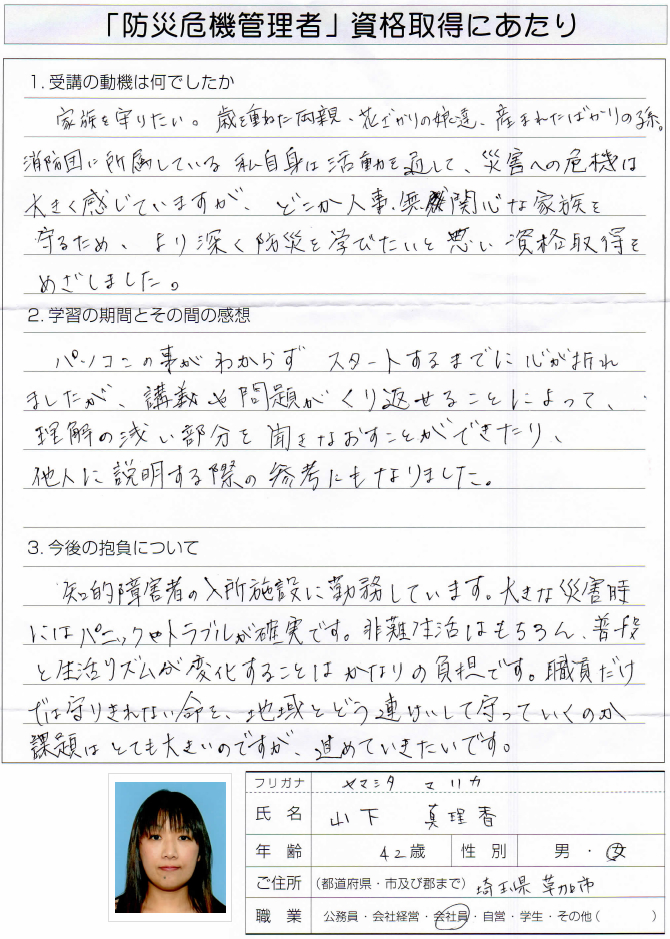 「防災危機管理者」資格取得にあたり
1. 受講の動機は何でしたか
家族を守りたい。歳を重ねた両親、花ざかりの娘達、産まれたばかりの孫。
消防団に所属している私自身は活動を通して、災害への危機は
大きく感じていますが、どこか人事、無関心な家族を
守るため、より深く防災を学びたいと思い資格取得を
めざしました。
2. 学習の期間とその間の感想
パソコンの事がわからず スタートするまでに心が折れ
ましたが、講義や問題がくり返せることによって、
理解の浅い部分を聞きなおすことができたり、
他人に説明する際の参考にもなりました。
3. 今後の抱負について
知的障害者の入所施設に勤務しています。大きな災害時
にはパニックやトラブルが確実です。非難生活はもちろん、普段
と生活リズムが変化することはかなりの負担です。職員だけ
では守りきれない命を、地域とどう連けいして守っていくのか
課題はとても大きいのですが、進めていきたいです。
フリガナ ヤマシタ マリカ
氏名 山下 真理香
年齢 42歳 性別 男・女
ご住所 (都道府県・市及び郡まで) 埼玉県草加市
職業 公務員・会社経営・会社員・自営・学生・その他( )